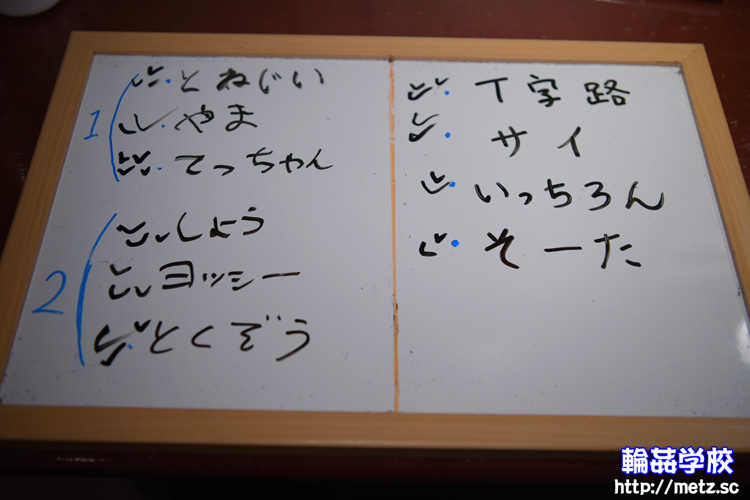 1
とねじい
やま
てっちゃん
2
しょう
ヨッシー
とくぞう
T字路
サイ
いっちろん
そーた
輪芸学校
http://metz.sc